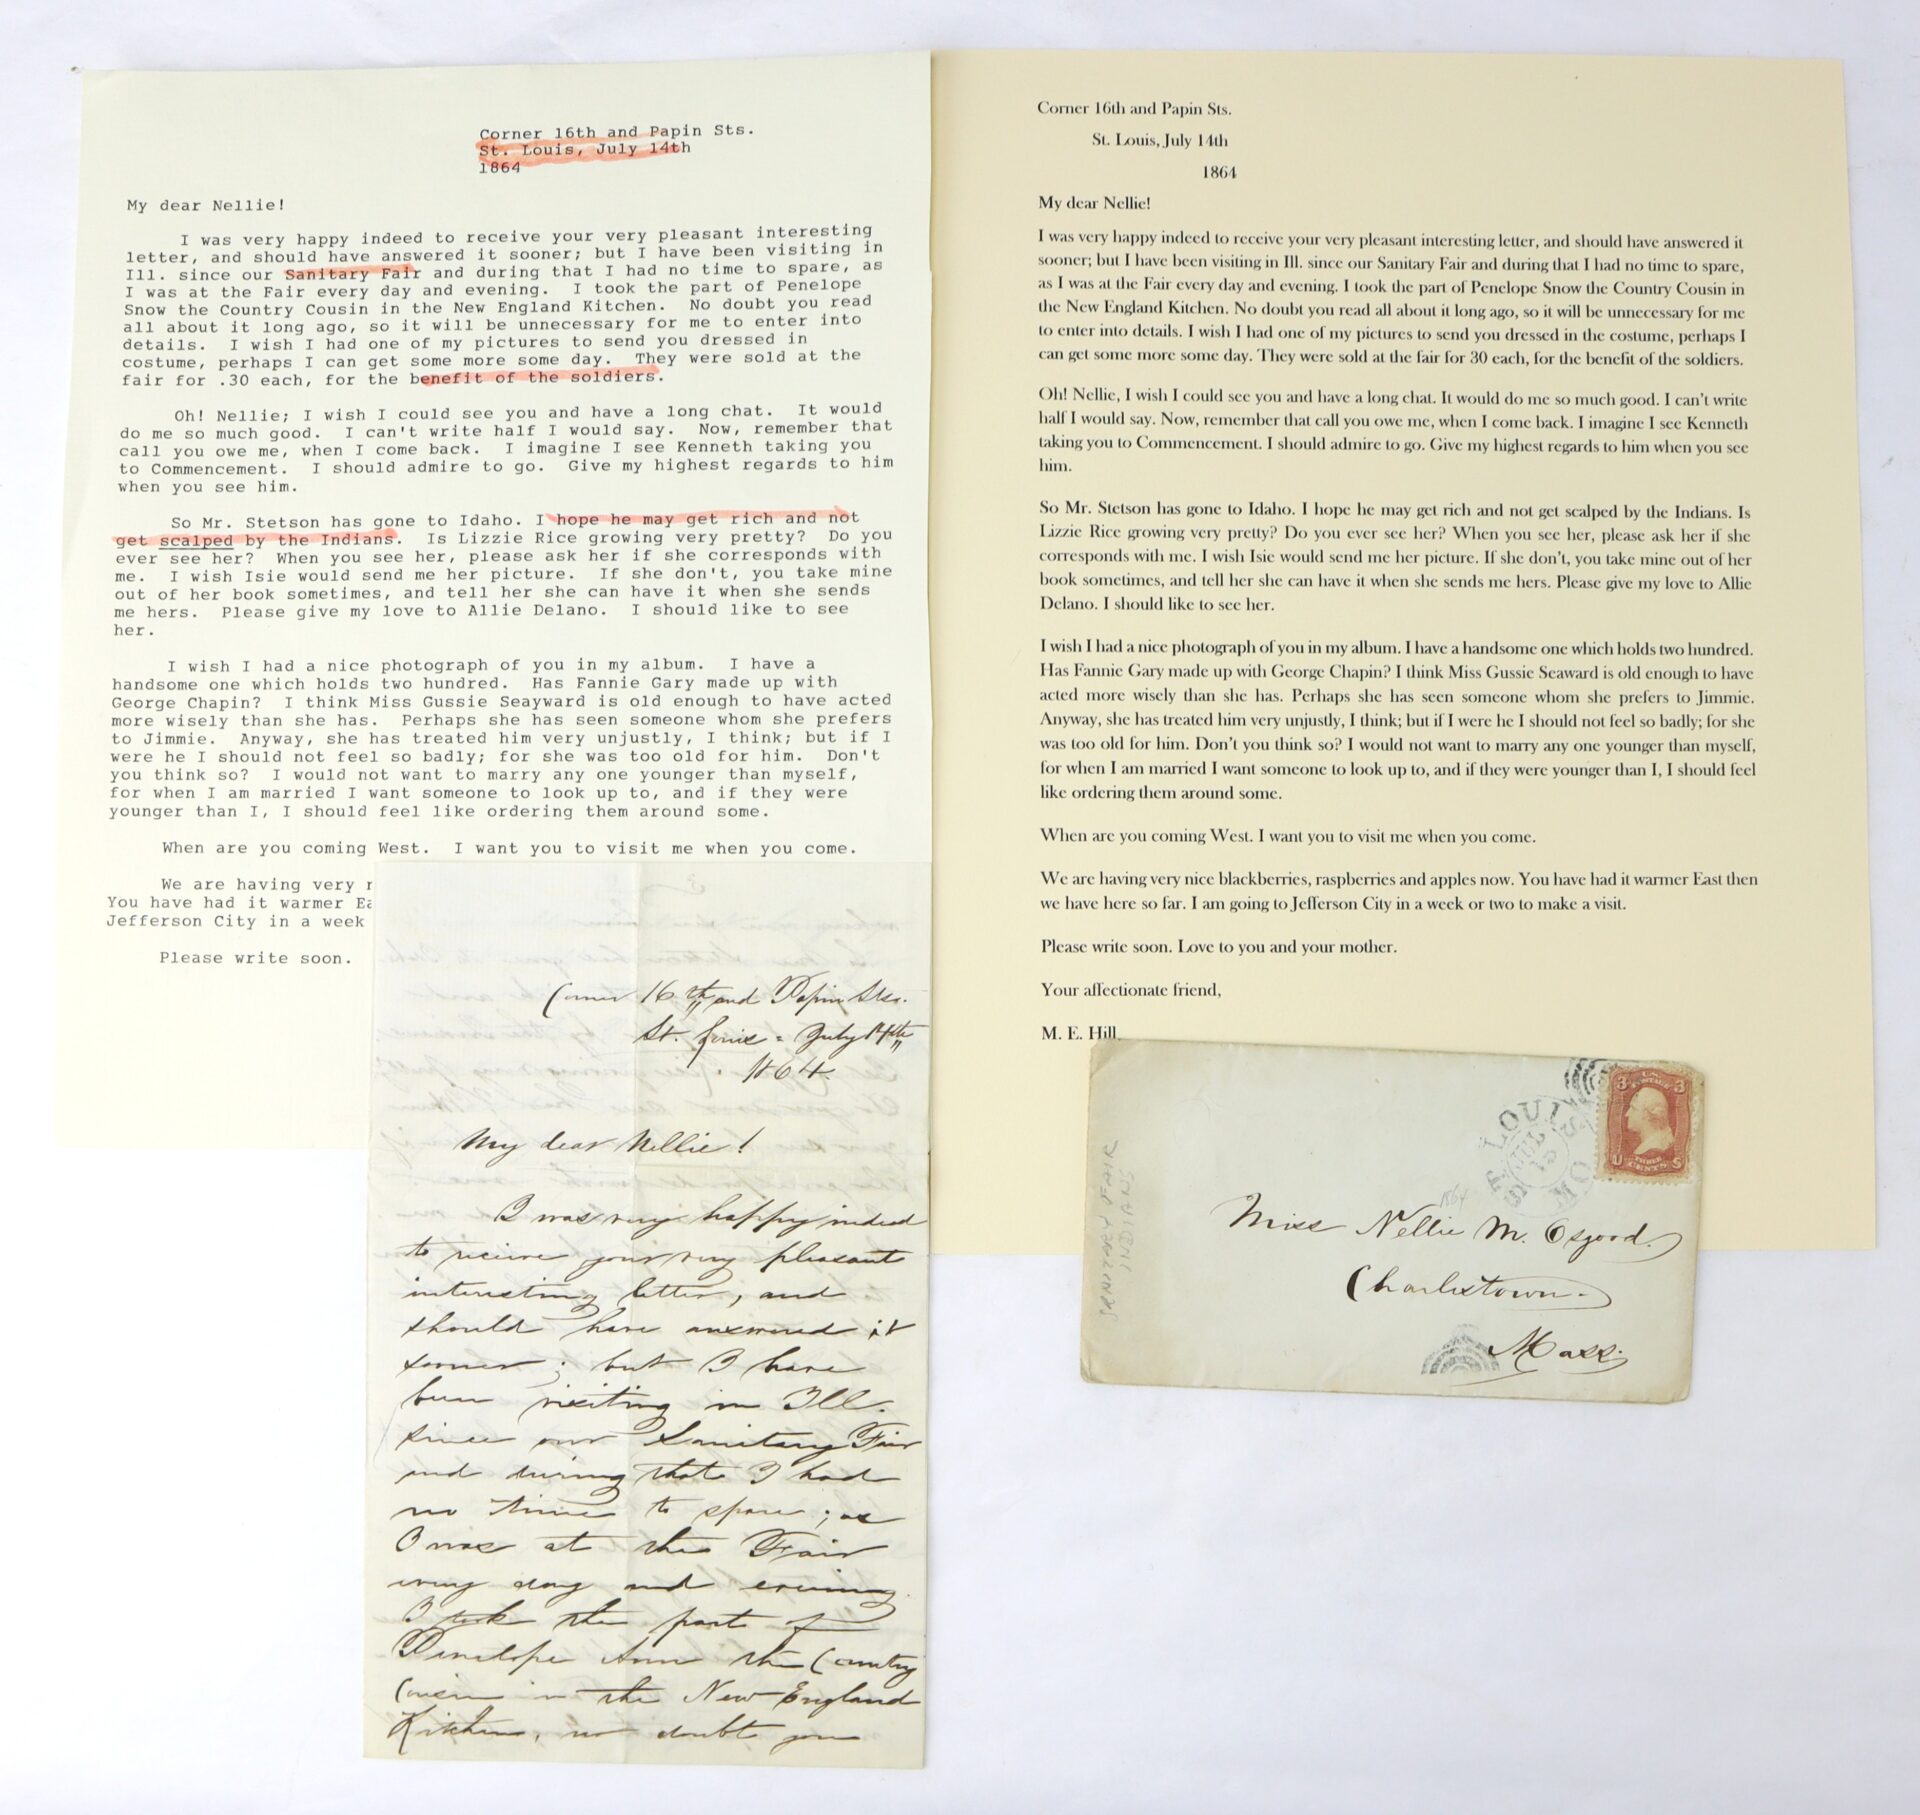 Corner 16th and Papin Sts.
St. Louis, July 14th
1864
My dear Nellie!
I was very happy indeed to receive your very pleasant interesting
letter, and should have answered it sooner; but I have been visiting in
Ill. since our Sanitary Fair and during that I had no time to spare, as
I was at the Fair every day and evening. I took the part of Penelope
Snow the Country Cousin in the New England Kitchen. No doubt you read
all about it long ago, so it will be unnecessary for me to enter into
details. I wish I had one of my pictures to send you dressed in
costume, perhaps I can get some more some day. They were sold at the
fair for .30 each, for the benefit of the soldiers.
Oh! Nellie; I wish I could see you and have a long chat. It would
do me so much good. I can't write half I would say. Now, remember that
call you owe me, when I come back. I imagine I see Kenneth taking you
to Commencement. I should admire to go. Give my highest regards to him
when you see him.
So Mr. Stetson has gone to Idaho. I hope he may get rich and not
get scalped by the Indians. Is Lizzie Rice growing very pretty? Do you
ever see her? When you see her, please ask her if she corresponds with
me. I wish Isie would send me her picture. If she don't, you take mine
out of her book sometimes, and tell her she can have it when she sends
me hers. Please give my love to Allie Delano. I should like to see
her.
I wish I had a nice photograph of you in my album. I have a
handsome one which holds two hundred. Has Fannie Gary made up with
George Chapin? I think Miss Gussie Seayward is old enough to have acted
more wisely than she has. Perhaps she has seen someone whom she prefers
to Jimmie. Anyway, she has treated him very unjustly, I think; but if I
were he I should not feel so badly; for she was too old for him. Don't
you think so? I would not want to marry any one younger than myself,
for when I am married I want someone to look up to, and if they were
younger than I, I should feel like ordering them around some.
When are you coming West. I want you to visit me when you come.
We are having very
You have had it warmer
Jefferson City in a week
Please write soon.
Corner 16th and Papin Sts.
St. Louis, July 14th
1864
My dear Nellie!
I was very happy indeed to receive your very pleasant interesting letter, and should have answered it
sooner; but I have been visiting in Ill. since our Sanitary Fair and during that I had no time to spare,
as I was at the Fair every day and evening. I took the part of Penelope Snow the Country Cousin in
the New England Kitchen. No doubt you read all about it long ago, so it will be unnecessary for me
to enter into details. I wish I had one of my pictures to send you dressed in the costume, perhaps I
can get some more some day. They were sold at the fair for 30 each, for the benefit of the soldiers.
Oh! Nellie, I wish I could see you and have a long chat. It would do me so much good. I can't write
half I would say. Now, remember that call you owe me, when I come back. I imagine I see Kenneth
taking you to Commencement. I should admire to go. Give my highest regards to him when you see
him.
So Mr. Stetson has gone to Idaho. I hope he may get rich and not get scalped by the Indians. Is
Lizzie Rice growing very pretty? Do you ever see her? When you see her, please ask her if she
corresponds with me. I wish Isie would send me her picture. If she don't, you take mine out of her
book sometimes, and tell her she can have it when she sends me hers. Please give my love to Allie
Delano. I should like to see her.
I wish I had a nice photograph of you in my album. I have a handsome one which holds two hundred.
Has Fannie Gary made up with George Chapin? I think Miss Gussie Seaward is old enough to have
acted more wisely than she has. Perhaps she has seen someone whom she prefers to Jimmie.
Anyway, she has treated him very unjustly, I think; but if I were he I should not feel so badly; for she
was too old for him. Don't you think so? I would not want to marry any one younger than myself,
for when I am married I want someone to look up to, and if they were younger than I, I should feel
like ordering them around some.
When are you coming West. I want you to visit me when you come.
We are having very nice blackberries, raspberries and apples now. You have had it warmer East then
we have here so far. I am going to Jefferson City in a week or two to make a visit.
Please write soon. Love to you and your mother.
Your affectionate friend,
M. E. Hill.
Corner 16th and Papin Sts.
St. Louis = July 14th
1864.
My dear Nellie!
I was very happy indeed
to recieve your very pleasant
interesting letter, and
should have answered it
sooner; but I have
been visiting in Ill.
since our Sanitary Fair
and during that I had
no time to spare; as
I was at the Fair
every day and evening.
I took the part of
Penelope Snow the Country
Cousin in the New England
Kitchen, no doubt you
ST LOUIS MO
JUL
15
U.S. POSTAGE
3 3
U THREE CENTS S
1864
Miss Nellie M. Osgood.
Charlestown.
Mass.
SANITARY FAIR
INDIANS